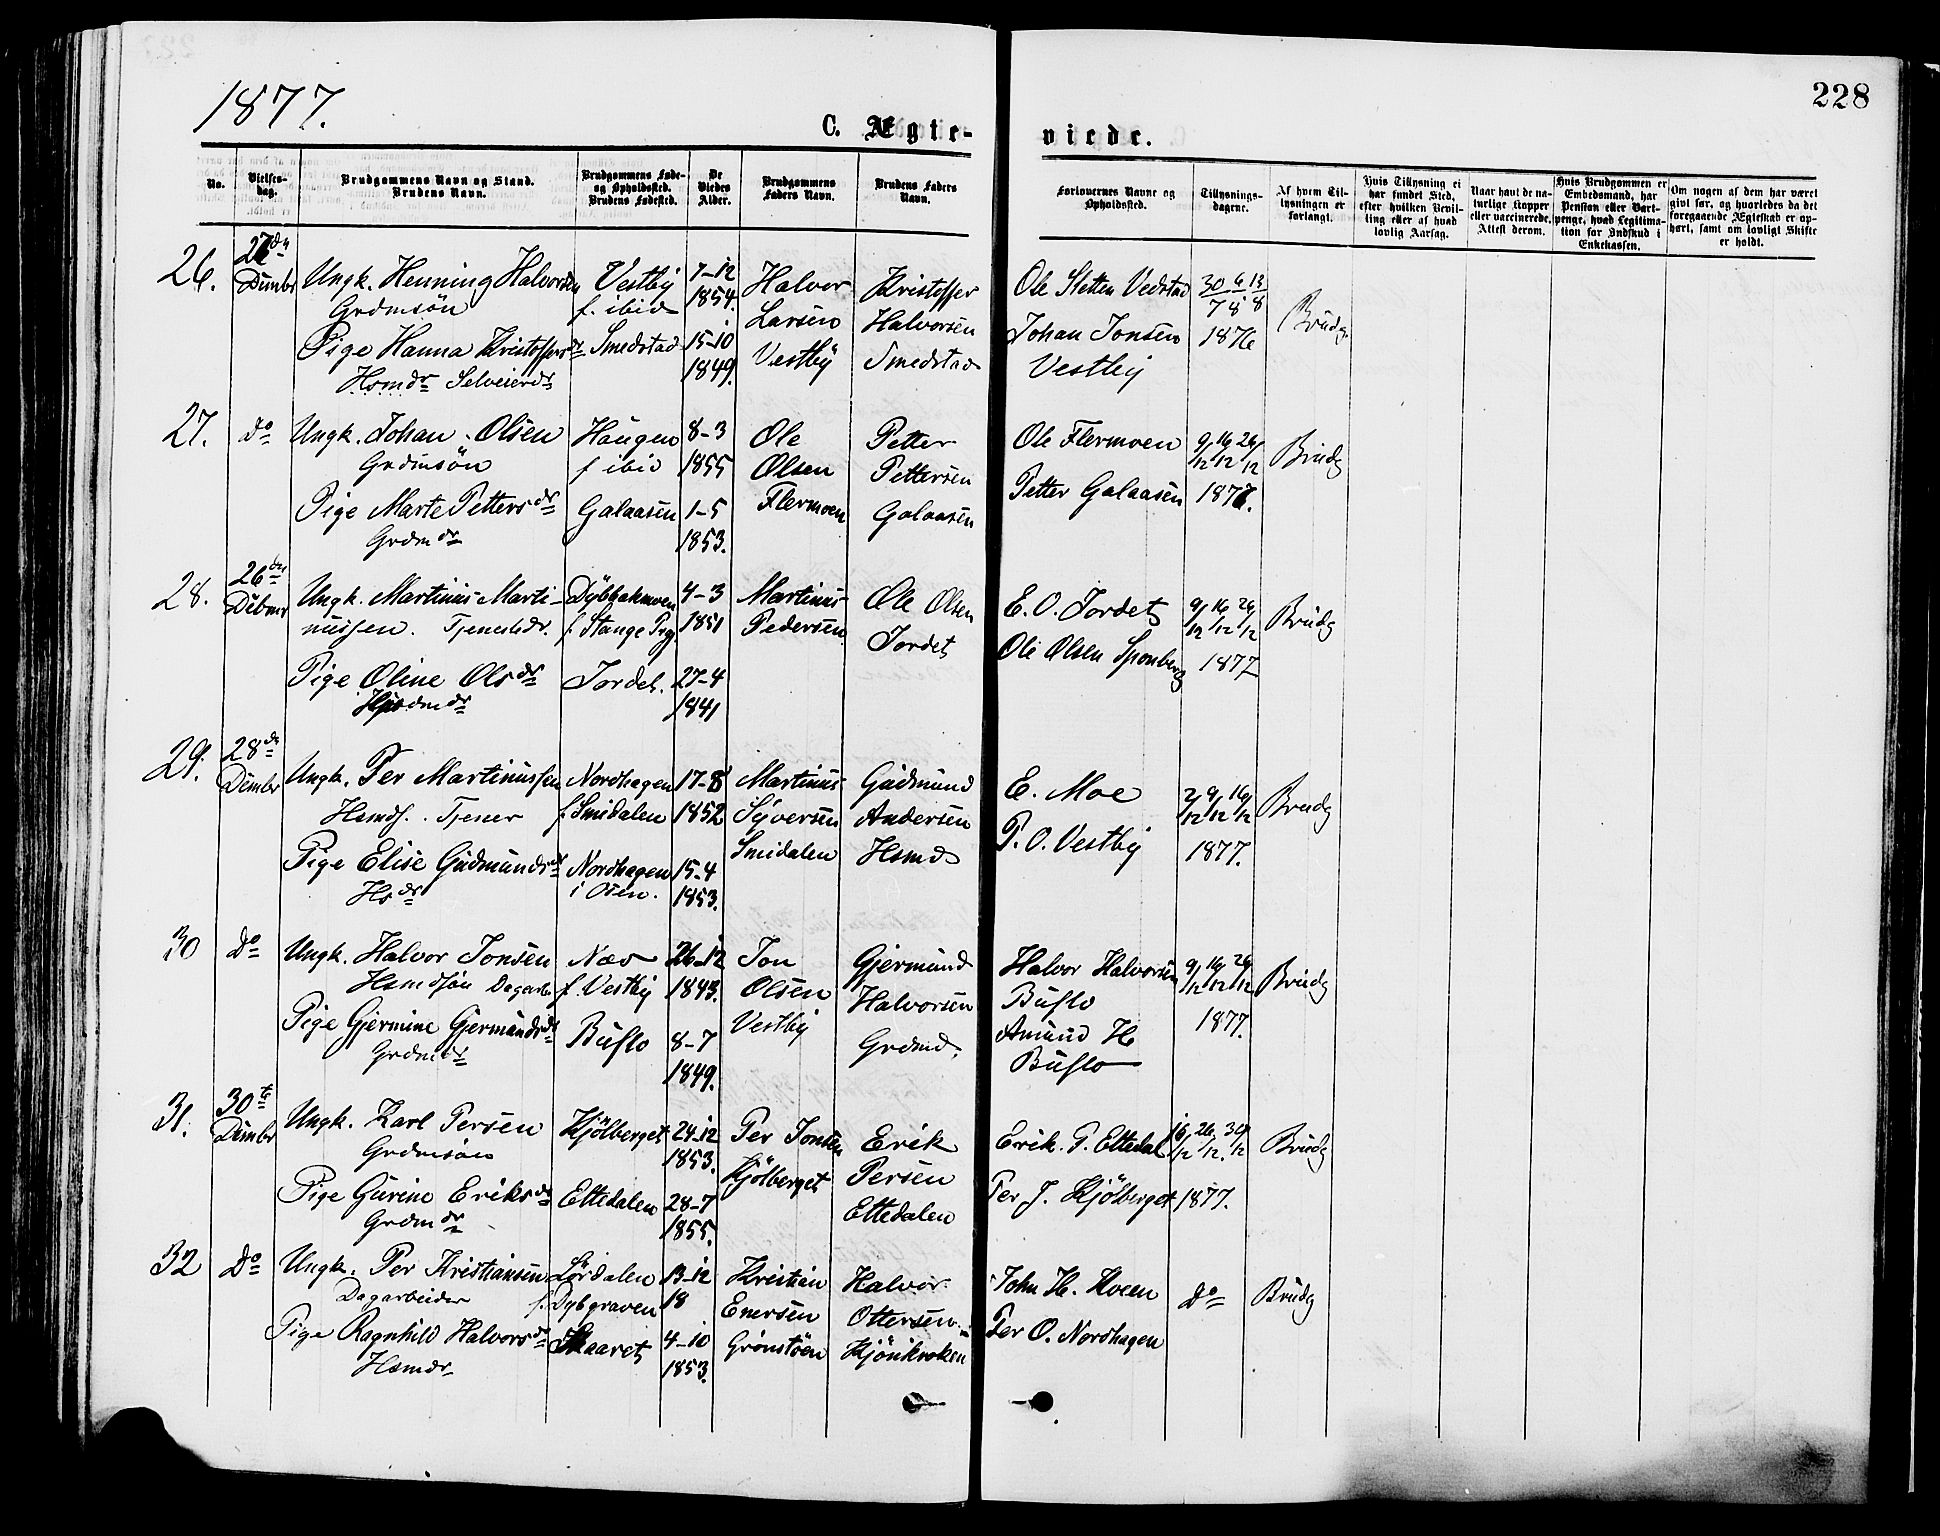 1877.
228
C. Ægte-
viede.
No.
Vielses-
dag.
Brudgommens Navn og Stand.
Brudens Navn.
Brudgommens Føde-
og Opholdssted.
Brudens Fødested.
De
Viedes
Alder.
Brudgommens
Faders Navn.
Brudens Faders
Navn.
Forlovernes Navne og
Opholdssted.
Tillysnings-
dagene.
Af hvem Til-
lysningen er
forlangt.
Hvis Tillysning ei
har fundet Sted,
efter hvilken Bevil-
ling eller af hvad
lovlig Aarsag.
Naar havt de na-
turlige Kopper
eller vaccinerede.
Attest derom.
Hvis Brudgommen er
Embedsmand, har
Pension eller Vart-
penge, hvad Legitima-
tion for Indskud i
Enkekassen.
Om nogen af dem har været
gift før, og hvorledes da det
foregaaende Ægteskab er op-
hørt, samt om lovligt Skifte
er holdt.
26.
Dimbr
Ungk. Henning Halvorsen
Grdmsøn
Vestby
f. ibid
7-12
1854.
Halvor
Larsen
Vestby
Kristoffer
Halvorsen
Smedstad
Pige Hanna Kristoffersdr
Hsmdr Selveierdr
Smedstad
15-10
1849.
Ole Sletten Vedstad
Johan Jonsen
Vestby
30/7 6/8 13/8
1876
Brudg.
27.
do
Ungk. Johan Olsen
Grdmsøn
Haugen
f. ibid
8-3
1855
Ole
Olsen
Flermoen
Petter
Pettersen
Galaasen
Pige Marte Pettersdr
Grdmdr
Galaasen
1-5
1853.
Ole Flermoen
Petter Galaasen
9/12 16/12 26/12
1877.
Brudg
28.
26de
Debmr
Ungk. Martinus Marti-
nussen. Tjenestdr.
Dybbakmoen
f. Stange Prg.
4-3
1851
Martinus
Pedersen
Ole Olsen
Jordet
Pige Oline Olsdr
Jordet.
27-4
1841
E. O. Jordet
Ole Olsen Sponberg
9/12 16/12 26/12
1877
Brudg
29.
28de
Dimbr
Ungk. Per Martinussen
Hsmds. Tjener
Nordhagen
f. Smidalen
17-8
1852
Martinus
Syversen
Smidalen
Gudmund
Andersen
Hsmd
Pige Elise Gudmundsdr
Hsdr
Nordhagen
i Osen.
15-4
1853.
E. Moe
P. O. Vestby
2/12 9/12 16/12
1877.
Brudg
30
Do
Ungk. Halvor Jonsen
Hsmdsøn Dagarb.
Næv
f. Vestby
26-12
1843.
Jon
Olsen
Vestby
Gjermund
Halvorsen
Grdmd.
Pige Gjermine Gjermundsdr
Grdmdr
Buflo
8-7
1849.
Halvor Halvorsen
Buflo
Amund H
Buflo
9/12 16/12 26/12
1877.
Brudg
31.
30te
Dimbr
Ungk. Karl Persen
Grdmsøn
Kjölberget
24-12
1853.
Per Jonsen
Kjölberget
Erik
Persen
Ettedalen
Pige Gurine Eriksdr
Grdmdr
Ettedalen
28-7
1855.
Erik. P. Ettedal
Per J. Kjölberget
16/12 26/12. 30/12
1877.
Brudg
32
Do
Ungk. Per Kristiansen
Dagarbeider
Lørdalen
f. Dybgraven
13-12
18
Kristian
Enersen
Grönstöen
Halvor
Ottersen
Kjönkroken
Pige Ragnhild Halvorsdr
Hsmdr
Skaaret
4-10
1853.
John H. Moen
Per O. Nordhagen
Do
Brudg